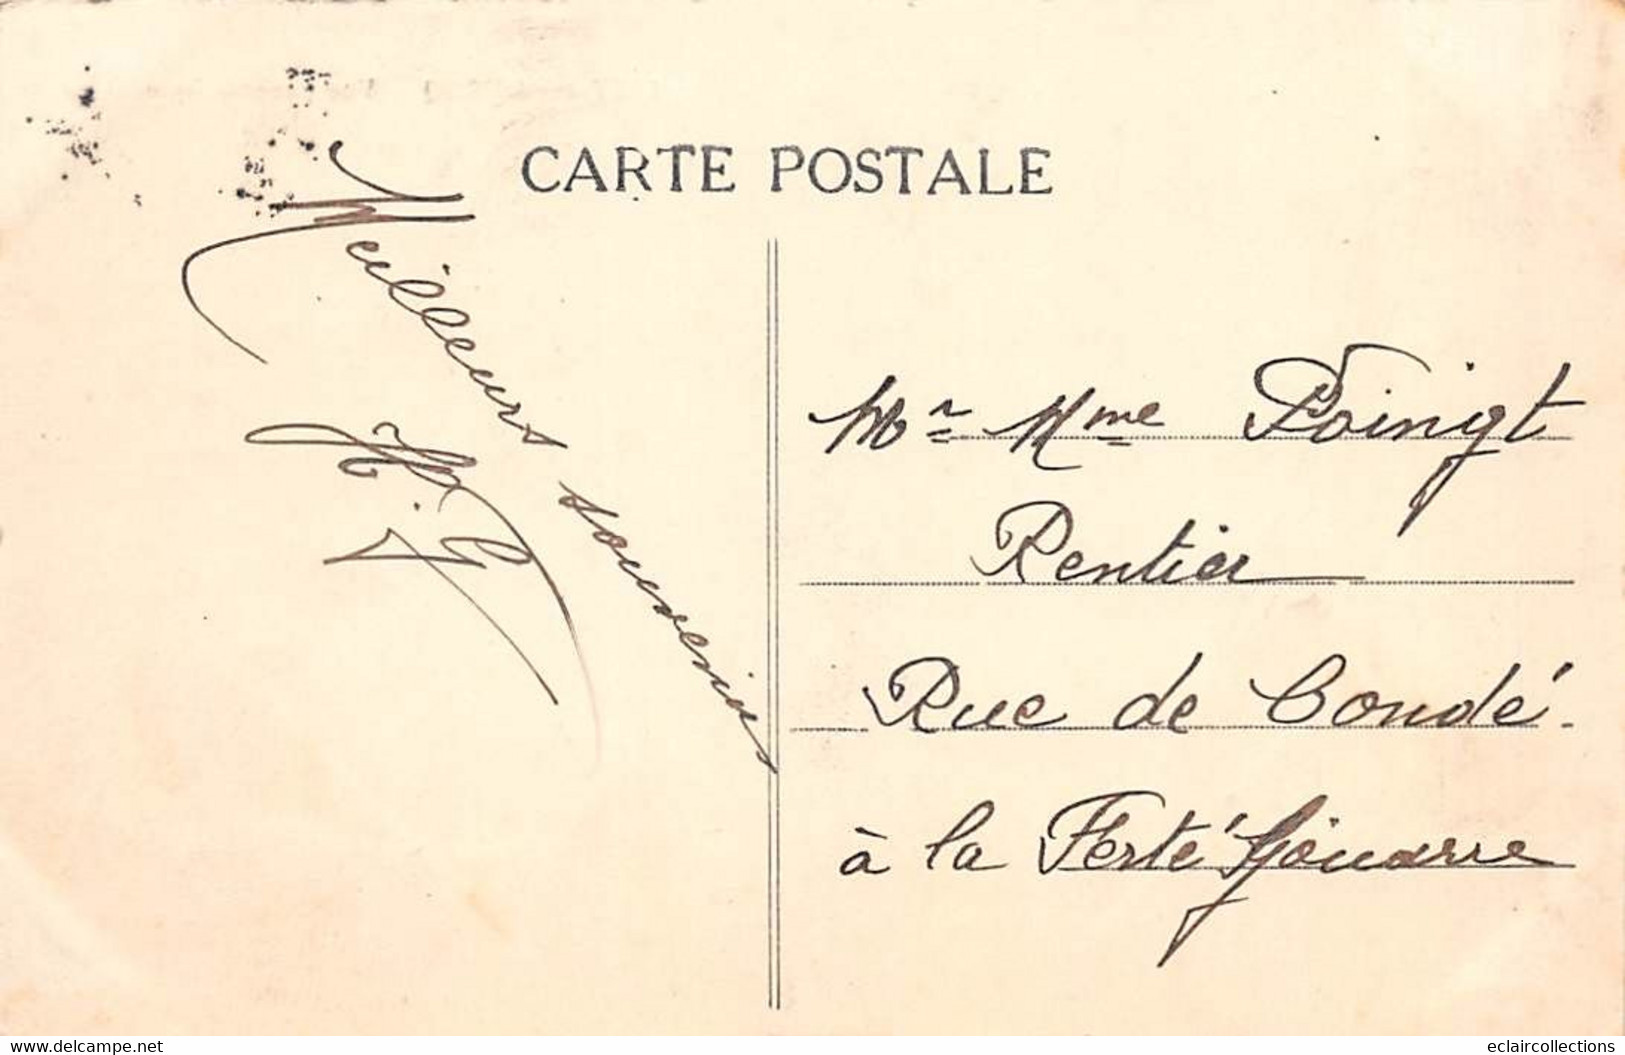 CARTE POSTALE
Meilleurs souvenirs
Mr Mme Poingt
Rentier
Rue de Condé
à la Ferté Jouarre
delcampe.net
eclaircollections